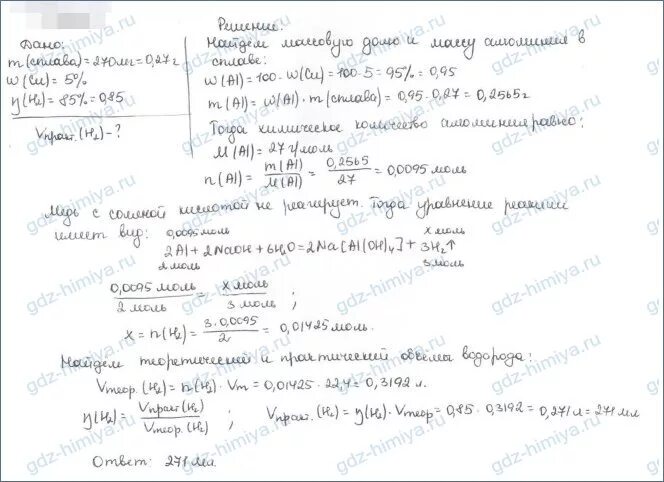 Дано:
m(сплава)=270мг=0,27г
w(Cu)=5%
η(H₂)=85%=0,85
Vпракт.(H₂)-?
Решение:
Найдем массовую долю и массу алюминия в
сплаве:
w(Al)=100-w(Cu)=100-5=95%=0,95
m(Al)=w(Al)·m(сплава)=0,95·0,27=0,2565г
Тогда химическое количество алюминия равно:
M(Al)=27г/моль
n(Al)=m(Al)/M(Al)=0,2565/27=0,0095 моль
Медь с соляной кислотой не реагирует. Тогда уравнение реакции
имеет вид:
0,0095 моль x моль
2Al+2NaOH+6H₂O=2Na[Al(OH)₄]+3H₂↑
2 моль 3 моль
0,0095 моль/2 моль=x моль/3 моль;
x=n(H₂)=3·0,0095/2=0,01425 моль.
Найдем теоретический и практический объемы водорода:
Vтеор.(H₂)=n(H₂)·Vm=0,01425·22,4=0,3192 л.
η(H₂)=Vпракт.(H₂)/Vтеор.(H₂); Vпракт.(H₂)=η(H₂)·Vтеор=0,85·0,3192=0,271л=271мл
Ответ: 271мл.
gdz-himiya.ru